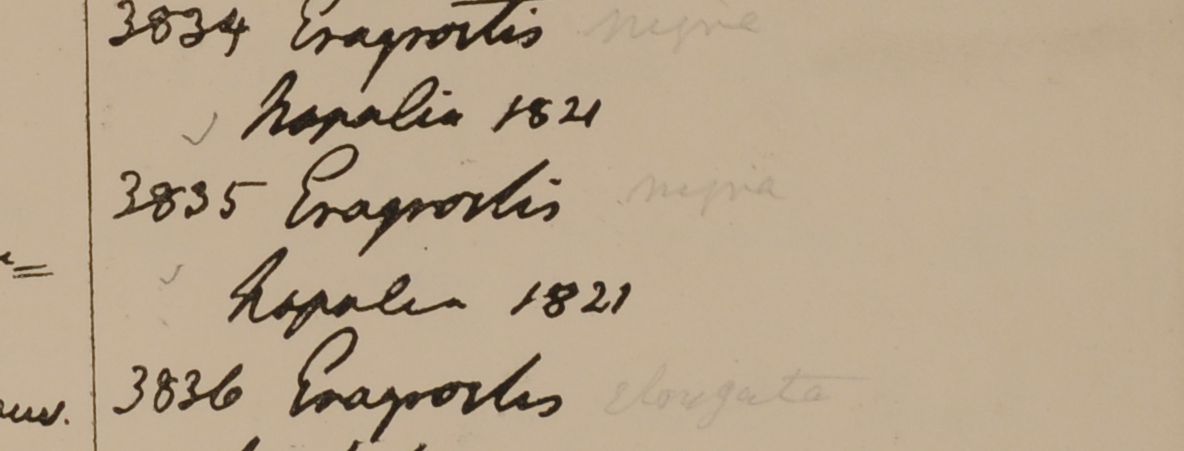 3834 Eragrostis nigra
Napalia 1821
3835 Eragrostis nigra
Napalia 1821
3836 Eragrostis elongata